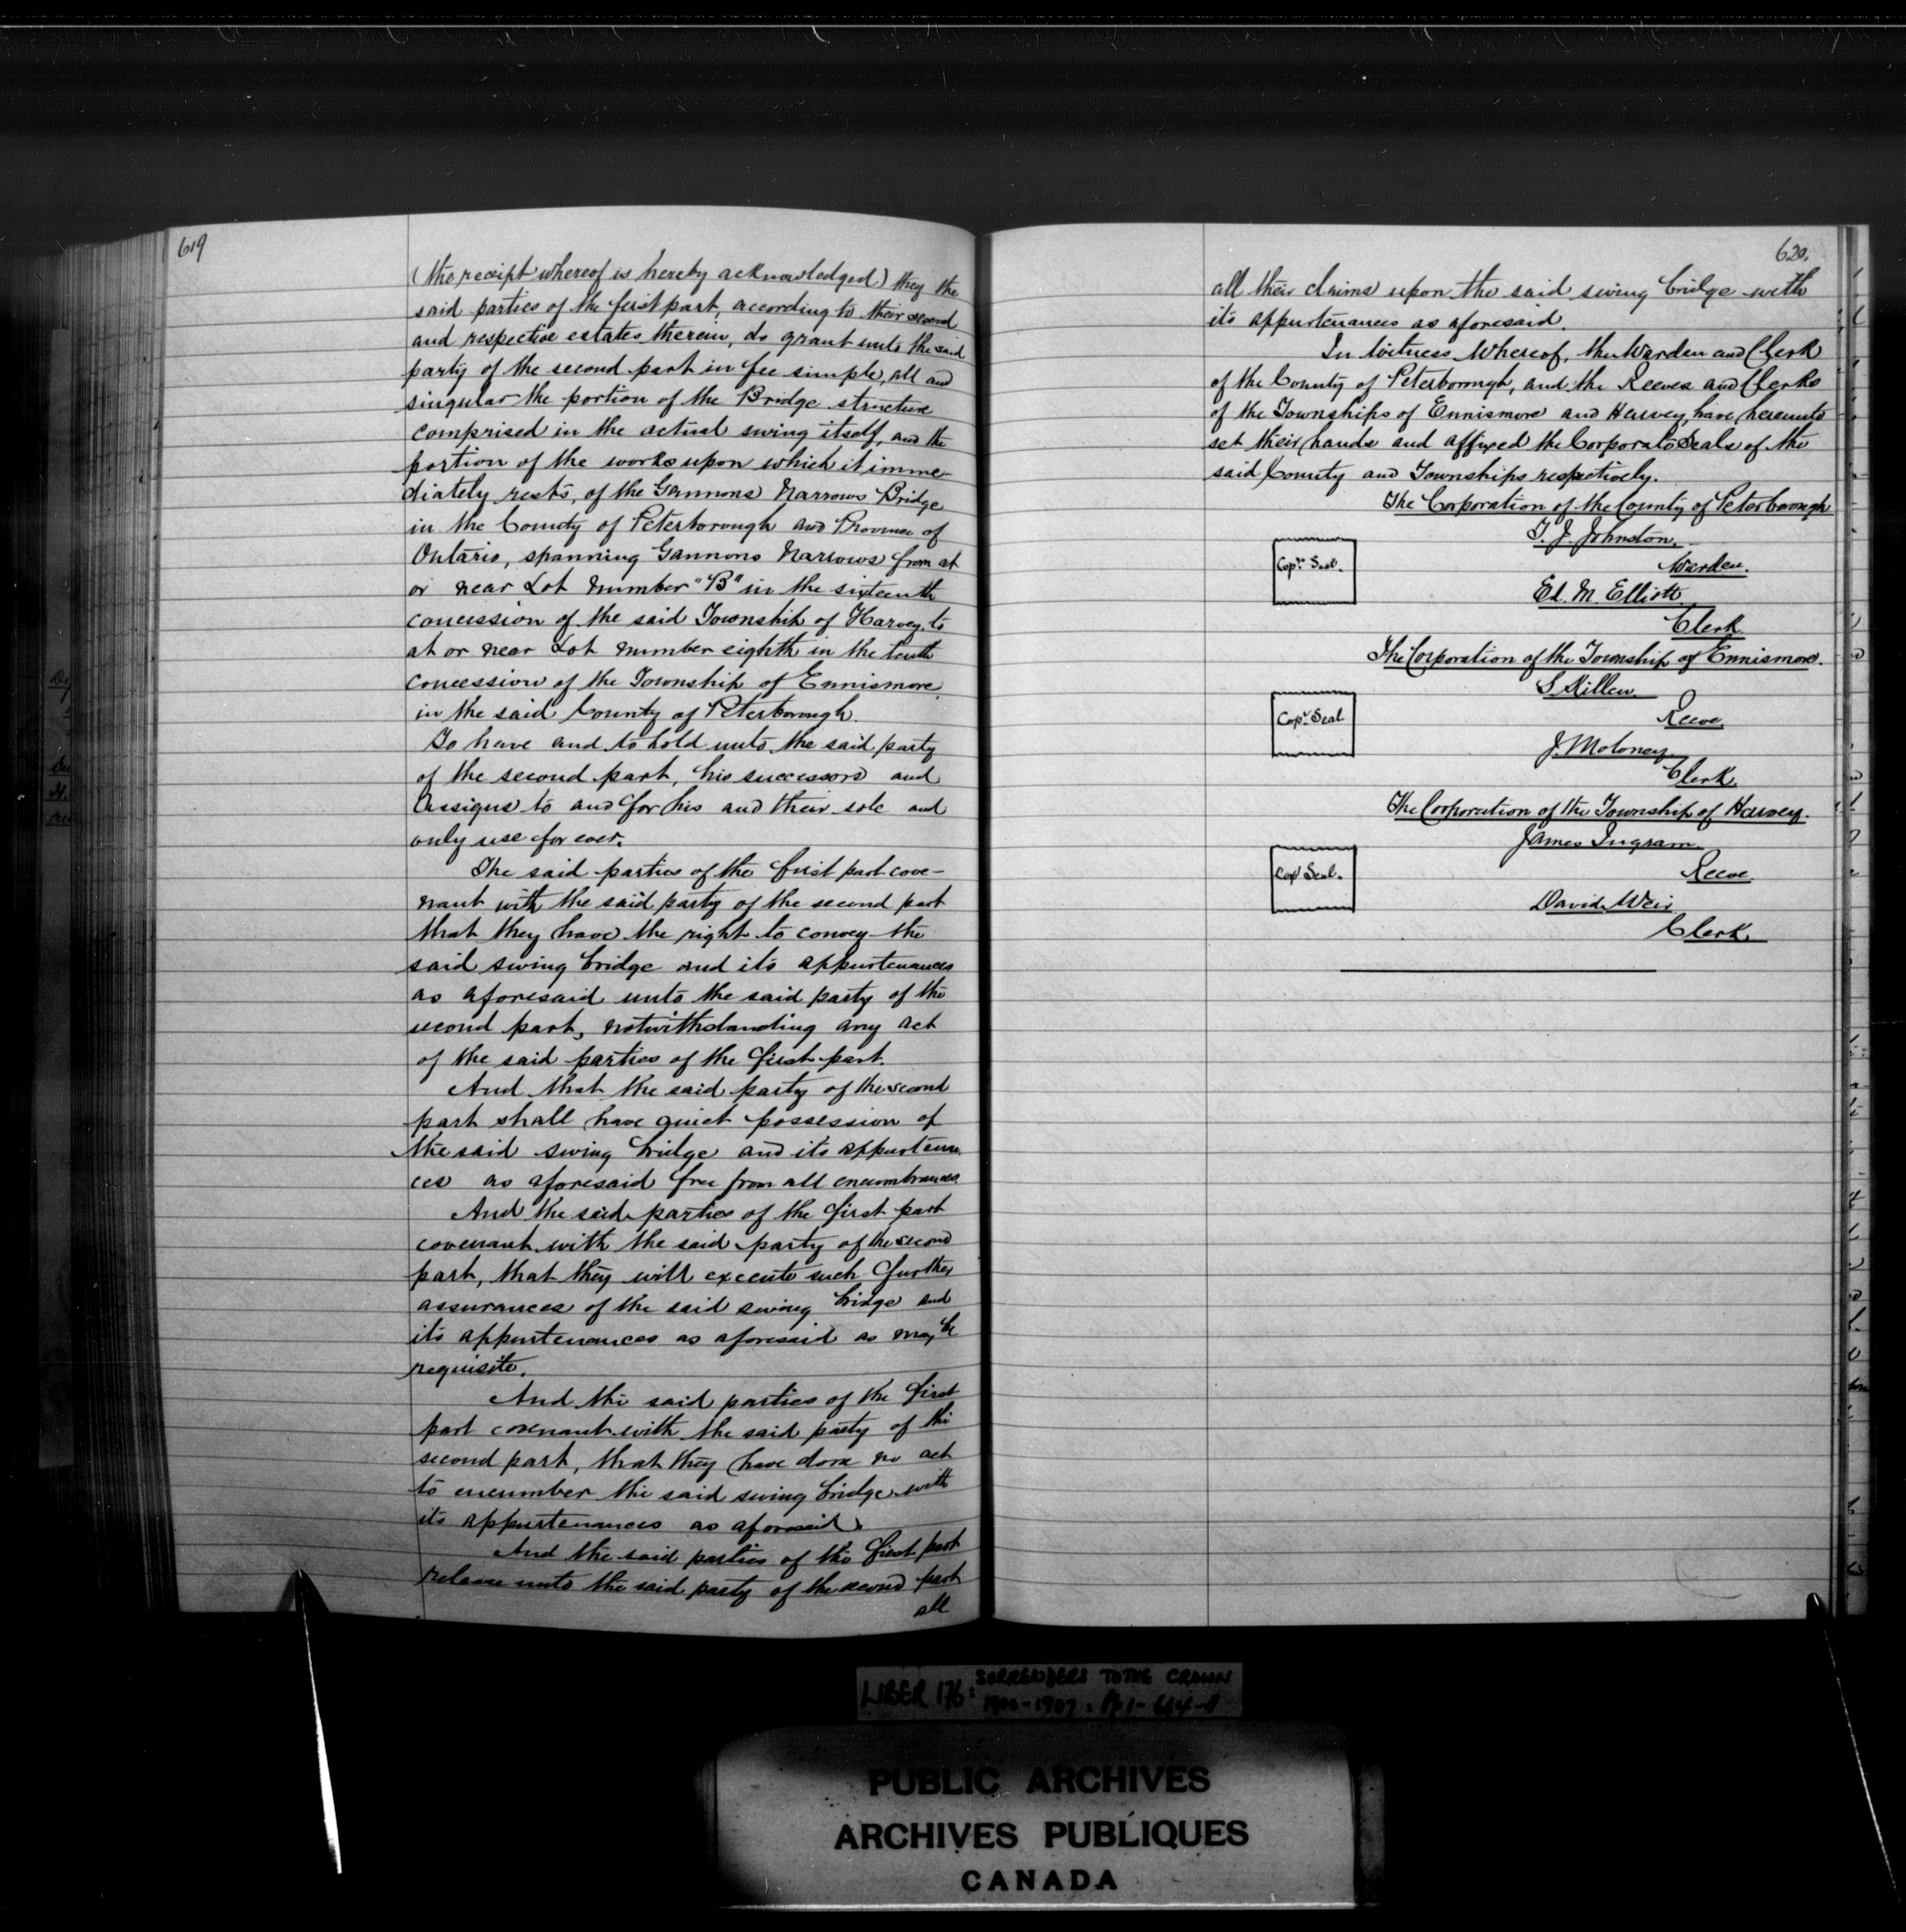 619
(the receipt whereof is hereby acknowledged) they the
said parties of the first part, according to their several
and respective estates therein, do grant unto the said
party of the second part in fee simple, all and
singular the portion of the Bridge structure
comprised in the actual swing itself, and the
portion of the works upon which it imme-
diately rests, of the Gannons Narrows Bridge
in the County of Peterborough and Province of
Ontario, spanning Gannons Narrows from at
or near Lot number "B" in the sixteenth
concession of the said Township of Harvey, to
at or near Lot number eighth in the tenth
concession of the Township of Ennismore,
in the said County of Peterborough.
To have and to hold unto the said party
of the second part, his successors and
Assigns to and for his and their sole and
only use for ever.
The said parties of the first part cove-
nant with the said party of the second part
that they have the right to convey the
said swing bridge and its appurtenances
as aforesaid unto the said party of the
second part, notwithstanding any act
of the said parties of the first part.
And that the said party of the second
part shall have quiet possession of
the said swing bridge and its appurtenan
ces as aforesaid free from all encumbrances.
And the said parties of the first part
covenant with the said party of the second
part, that they will execute such further
assurances of the said swing bridge and
its appurtenances as aforesaid as may be
requisite.
And the said parties of the first
part covenant with the said party of the
second part, that they have done no act
to encumber the said swing bridge with
its appurtenances as aforesaid.
And the said parties of the first part
release unto the said party of the second part
all
620.
all their claims upon the said swing bridge with
its appurtenances as aforesaid.
In Witness Whereof, the Warden and Clerk
of the County of Peterborough, and the Reeves and Clerks
of the Townships of Ennismore and Harvey, have hereunto
set their hands and affixed the Corporate Seals of the
said County and Townships respectively.
The Corporation of the County of Peterborough
T. J. Johnston.
Copr. Seal.
Warden.
Ed. M. Elliott
Clerk
The Corporation of the Township of Ennismore.
S Killen.
Copr. Seal
Reeve.
J. Moloney
Clerk
The Corporation of the Township of Harvey.
James Ingram
Copr Seal.
Reeve
David Weir
Clerk
LIBER 176: SURRENDERS TO THE CROWN
1900-1907: Pp 1-664-A
PUBLIC ARCHIVES
ARCHIVES PUBLIQUES
CANADA